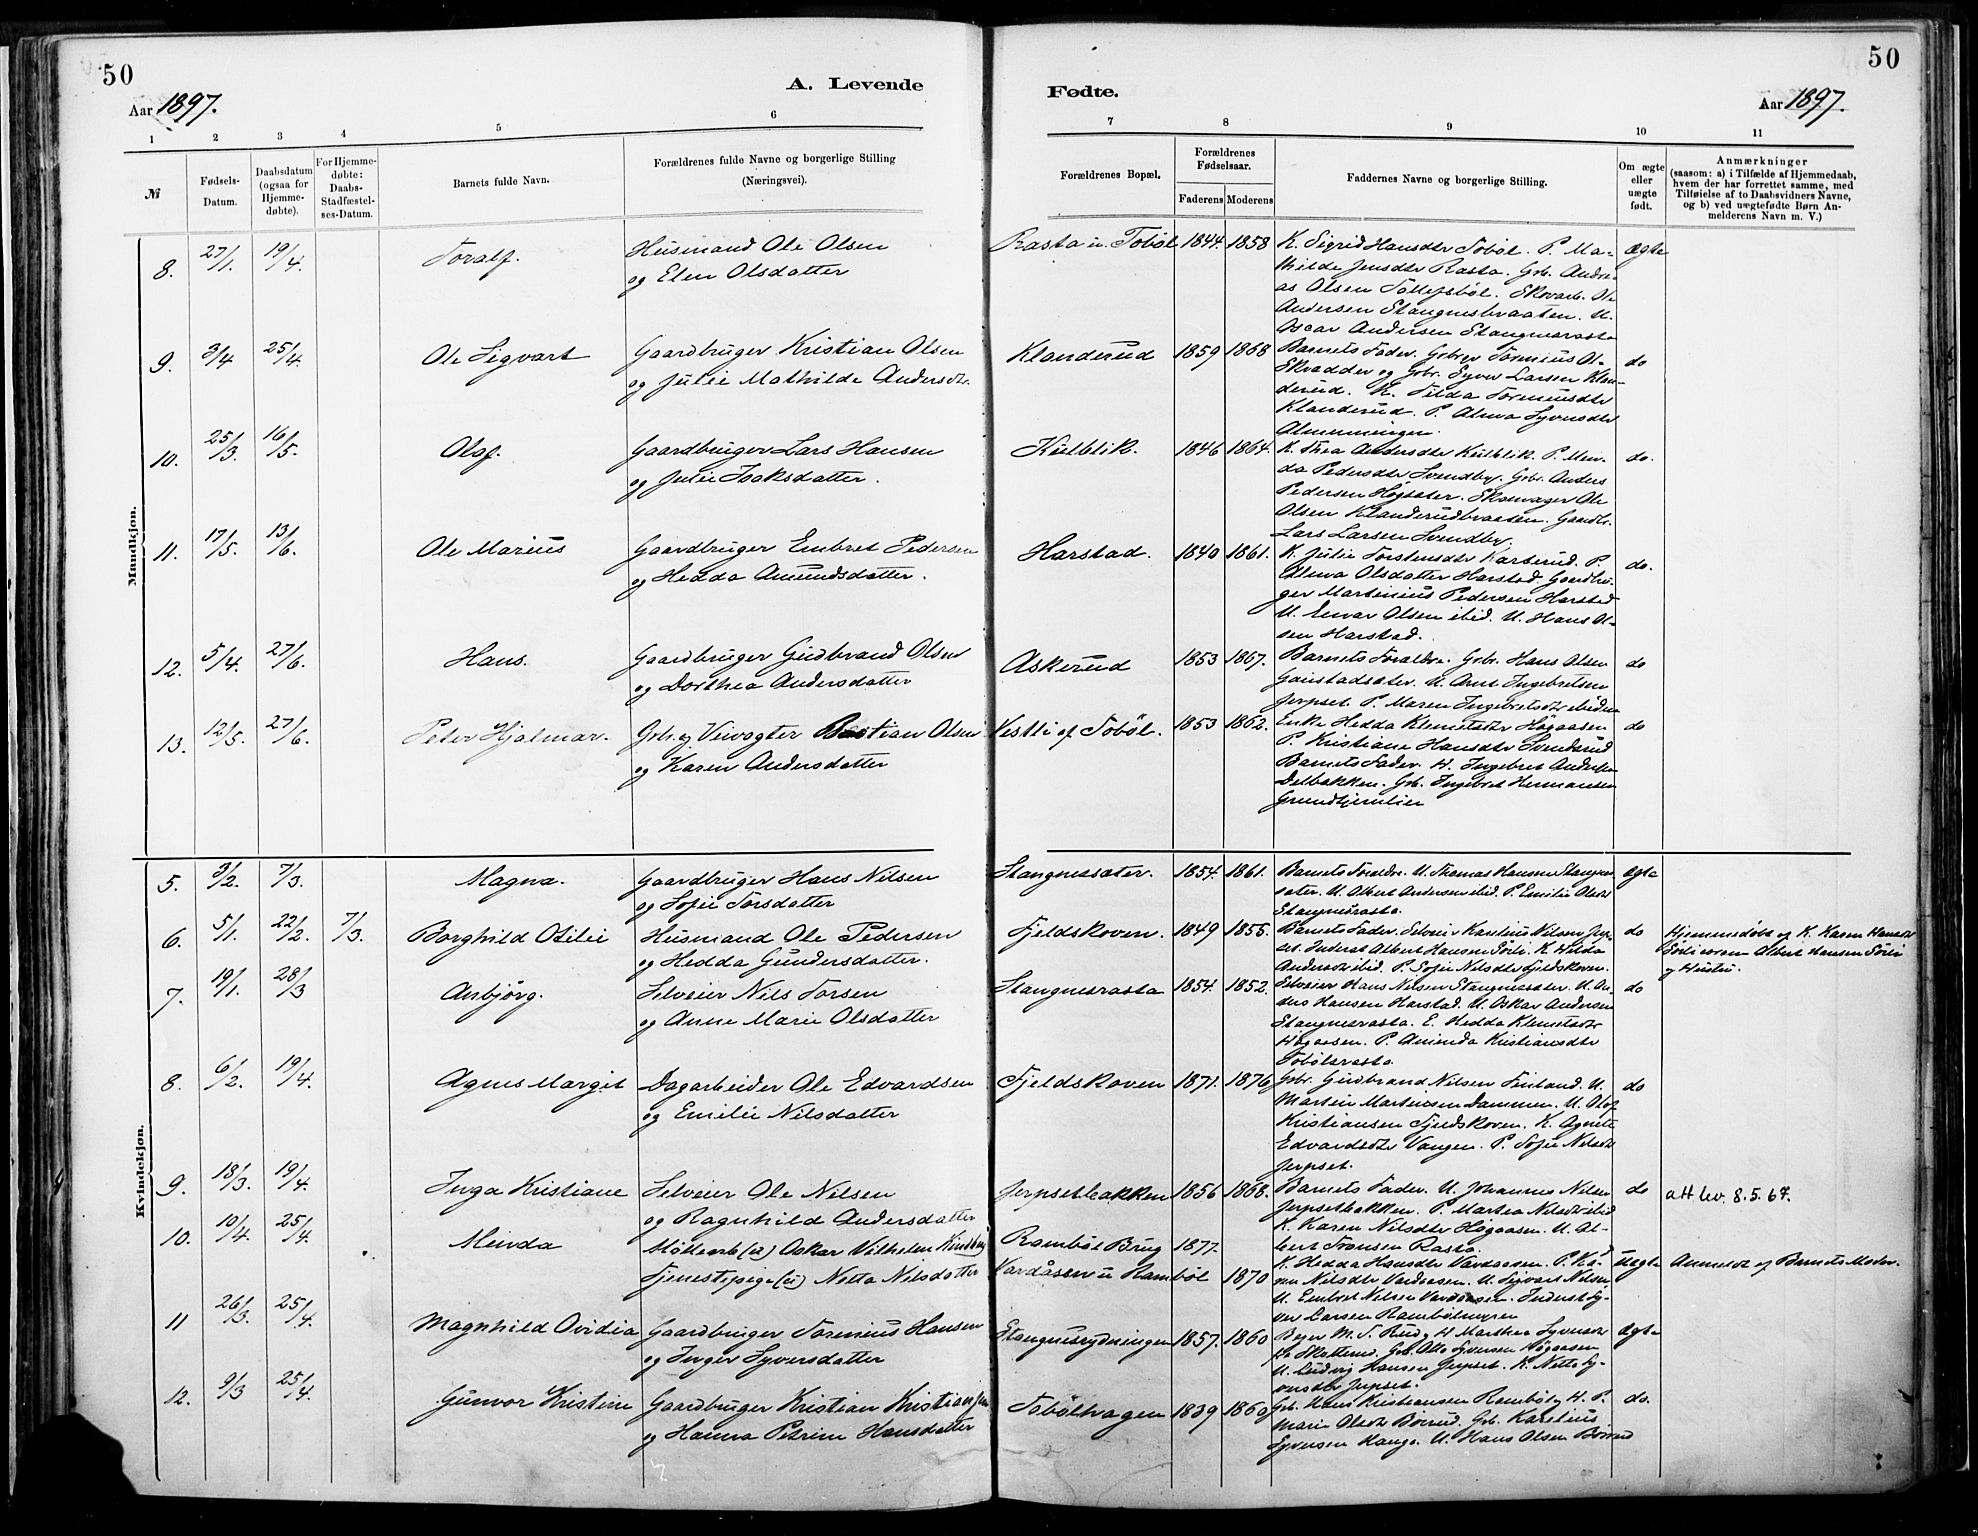 50
50
A. Levende Fødte.
Aar 1897.
Aar 1897.
1 2 3 4 5 6 7 8 9 10 11
№
Fødsels-
Datum.
Daabsdatum
(ogsaa for
Hjemme-
døbte).
For Hjemme-
døbte:
Daabs-
Stadfæstel-
ses-Datum.
Barnets fulde Navn.
Forældrenes fulde Navne og borgerlige Stilling
(Næringsvei).
Forældrenes Bopæl.
Forældrenes
Fødselsaar.
Faderens Moderens
Faddernes Navne og borgerlige Stilling.
Om ægte
eller
uægte
født.
Anmærkninger
(saasom: a) i Tilfælde af Hjemmedaab,
hvem der har forrettet samme, med
Tilføielse af to Daabsvidners Navne,
og b) ved uægtefødte Børn An-
melderens Navn m. V.)
Mandkjøn.
8. 27/1. 19/4. Toralf. Husmand Ole Olsen
og Elen Olsdatter
Rasta u. Tobøl 1844. 1858
K. Sigrid Hansdtr Tobøl. P. Ma-
thilde Jensdtr Rasta. Grb. Andre-
as Olsen Tollefsbøl. Skovarb. Ole
Andersen Stangnesbraaten. U.
Oscar Andersen Stangnesrasta
Ægte
9. 3/4 25/4. Ole Sigvart Gaardbruger Kristian Olsen
og Julie Mathilde Andersdtr.
Klanderud 1859 1868
Barnets Fader. Grbgr Torinius Ols
Skradder og Gbr. Syver Larsen Klan-
derud. K. Tilda Toriniusdtr
Klanderud. P. Alma Syversdtr
Almenningen.
do
10. 25/3. 16/5. Olaf. Gaardbruger Lars Hansen
og Julie Isaksdatter.
Kulblik. 1846 1864.
K. Thea Andersdtr Kulblik. P. Min-
da Pedersdtr Svendby. Gbr. Anders
Pedersen Høgsæter. Skomager Ole
Olsen Klanderudbraaten. Gaardbr.
Lars Larsen Svendby.
do.
11. 17/5. 13/6. Ole Marius Gaardbruger Embret Pedersen
og Hedda Amundsdatter.
Harstad. 1840 1861.
K. Julie Torstensdtr Karterud. P.
Alma Olsdatter Harstad. Gaardbru-
ger Martinius Pedersen Harstad
U. Einar Olsen ibid. U. Hans Ol-
sen Harstad.
do.
12. 5/4. 27/6. Hans. Gaardbruger Gudbrand Olsen
og Dorthea Andersdatter
Askerud 1853 1867.
Barnets Forældre. Gbr. Hans Olsen
Gaustadsæter. U. Arnt Ingebretsen
Jerpset. P. Maren Ingebretsdtr ibidem
do
13. 12/5. 27/6. Peter Hjalmar. Grb. og Veivogter Bastian Olsen
og Karen Andersdatter
Vestli af Tobøl. 1853 1862.
Enke Hedda Klemetsdtr Høgaasen
P. Kristiane Hansdtr Svenderud
Barnets Fader. H. Ingebret Andersen
Delbakken. Gb. Ingebret Hermansen
Grundtjernlien
do
Kvindekjøn.
5. 3/2. 7/3. Magna. Gaardbruger Hans Nilsen
og Sofie Torsdatter
Stangnessæter. 1854. 1861.
Barnets Forældre. U. Thomas Hansen Stangnes-
sæter. U. Albert Andersen ibid. P. Emilie Olsdtr
Stangnesrasta.
Ægte
6. 5/1. 22/2. 7/3. Borghild Otilie Husmand Ole Pedersen
og Hedda Gundersdatter.
Fjeldskoven. 1849 1855.
Barnets Fader. Selveier Karelius Nilsen Jerp-
set. Inderst Albert Hansen Sørli. K. Hilda
Andersdtr ibid. P. Sofie Nilsdtr Fjeldskoven.
do
Hjemmedøbt af K. Karen Hansdtr
Sørlieeren Albert Hansen Sørli
og Hustru.
7. 19/1. 28/3 Asbjørg. Selveier Nils Torsen
og Anne Marie Olsdatter
Stangnesrasta 1854. 1852.
Selveier Hans Nilsen Stangnessæter. U. An-
ders Hansen Harstad. U. Oskar Andersen
Stangnesrasta. E. Hedda Klemetsdtr
Høgaasen. P. Aminda Kristiansdtr
Tobølsrasta.
do
8. 6/2. 19/4. Agnes Margit Dagarbeider Ole Edvardsen
og Emilie Nilsdatter
Fjeldskoven 1871. 1876
Gbr. Gudbrand Nilsen Finland. U.
Martin Martinsen Dammen. U. Olaf
Kristiansen Fjeldskoven. K. Agnete
Edvardsdtr Vangen. P. Sofie Nilsdtr
Jerpset.
do
9. 18/3. 19/4. Inga Kristiane Selveier Ole Nilsen
og Ragnhild Andersdatter
Jerpsetbakken 1856 1868.
Barnets Fader. U. Johannes Nilsen
Jerpsetbakken. P. Martea Nilsdtr ibid
K. Karen Nilsdtr Høgaasen. U. Al-
bert Fransen Rasta.
do
att lev. 8.5.67.
10. 10/4. 25/4. Minda Møllearb (a) Oskar Vilhelm Kindberg
Tjenestepige (a) Netta Nilsdatter
Rambøl Brug 1877.
Vardåsen u Rambøl 1870
K. Hedda Hansdtr Vardaasen. P. Ka-
ren Nilsdtr Vardaasen. U. Sigvart Nilsen
U. Embret Nilsen Vardaasen. Inderst Sy-
ver Larsen Rambølmyren
Uægte
Anmeldt af Barnets Moder.
11 26/3. 25/4. Magnhild Ovidia Gaardbruger Torinius Hansen
og Inger Syversdatter
Stangnesrydningen 1857. 1860
M. T. Ruud og H. Marthea Syversdtr
Skotterud. Gb. Otto Syversen Høgaasen
U. Ludvig Hansen Jerpset. K. Netta Sy-
versdtr Jerpset.
Ægte
12. 9/3 25/4. Gunvor Kristine Gaardbruger Kristian Kristiansen
og Hanna Petrine Hansdatter
Tobølhagen 1839 1860
Gb. Hans Kristiansen Rambøl og H. P.
Marie Olsdtr Børrud. Gb. Karelius
Syversen Hauge. U. Hans Olsen Børrud
do.